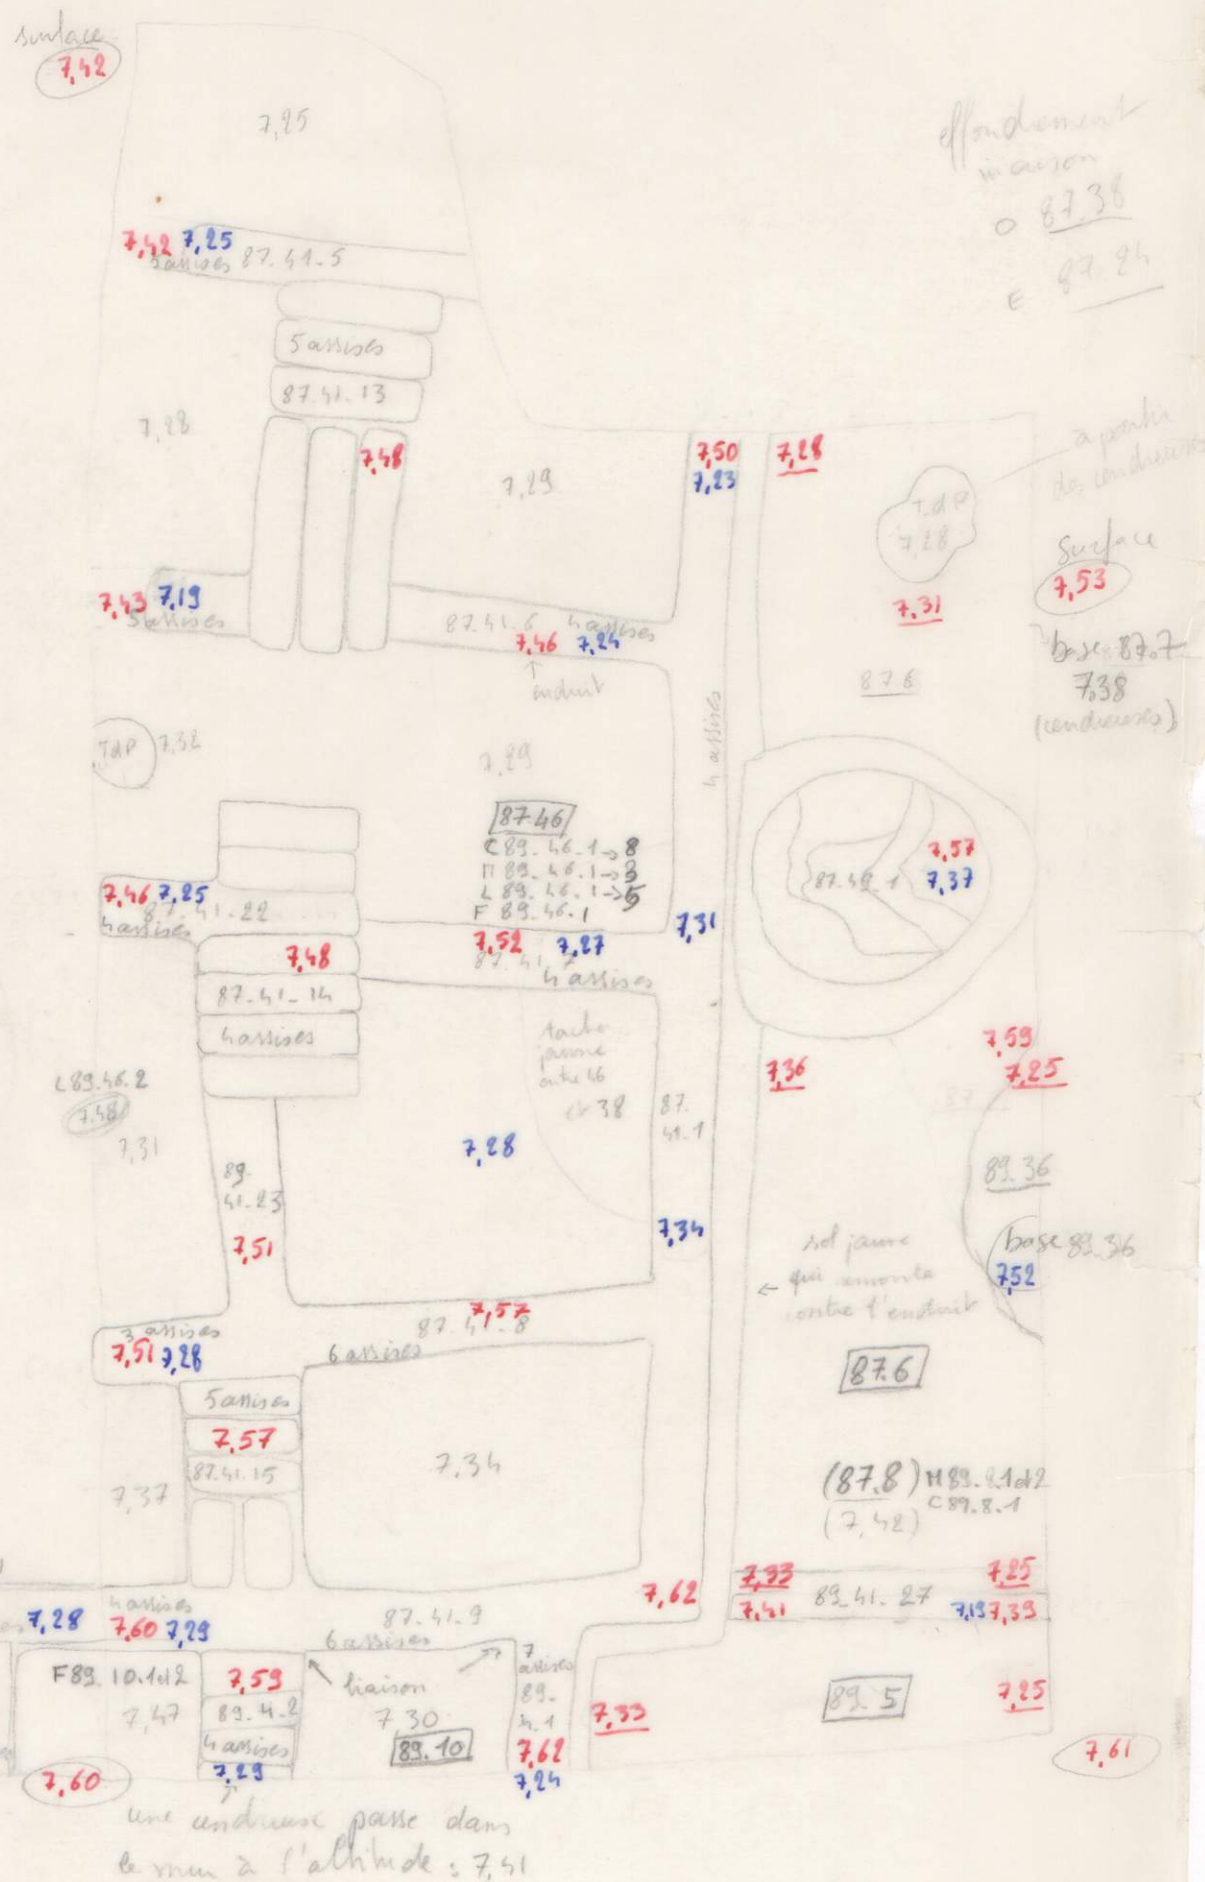 surface
7,42
7,25
effondrement
maison
O 87.38
E 87.24
7,42 7,25
5 assises 87.41-5
5 assises
87.41-13
7,28
7,48
7,29
7,50
7,23
7,28
à partir
des cendreuses
T.d.P
7,28
surface
7,53
7,31
7,43 7,19
5 assises
87.41.6 4 assises
7,46 7,24
↑
enduit
base 87.7
7,38
(cendreuses)
87.6
4 assises
TdP 7,32
7,29
87.46
C 89.46.1→8
M 89.46.1→3
L 89.46.1→5
F 89.46.1
7,57
87.49.1 7,37
7,46 7,25
87.41.22
4 assises
7,52 7,27
87.41.7
4 assises
7,31
7,48
87-41-14
4 assises
tache
jaune
entre 46
et 38
7,36
7,59
7,25
L 89.46.2
7.48
7,31
87.
41.1
7,28
89-
41-23
7,51
7,34
89.36
base 89.36
7,52
sol jaune
← qui remonte
contre l'enduit
7,57
87.41-8
3 assises
7,51 7,28
6 assises
87.6
5 assises
7,57
87.41.15
7,34
7,37
(87.8) M 89.8.1et2
C 89.8.1
(7,42)
7,33
7,25
7,41
89.41.27
7,19 7,39
7,62
4 assises
7,28 7,60 7,29
87.41.9
6 assises
7
assises
89-
4.1
7,62
7,24
F 89.10.1et2
7,47
7,59
89.4.2
4 assises
7,29
liaison
7,30
89.10
7,33
89.5
7,25
7,60
7,61
↑
une cendreuse passe dans
le mur à l'altitude : 7,41